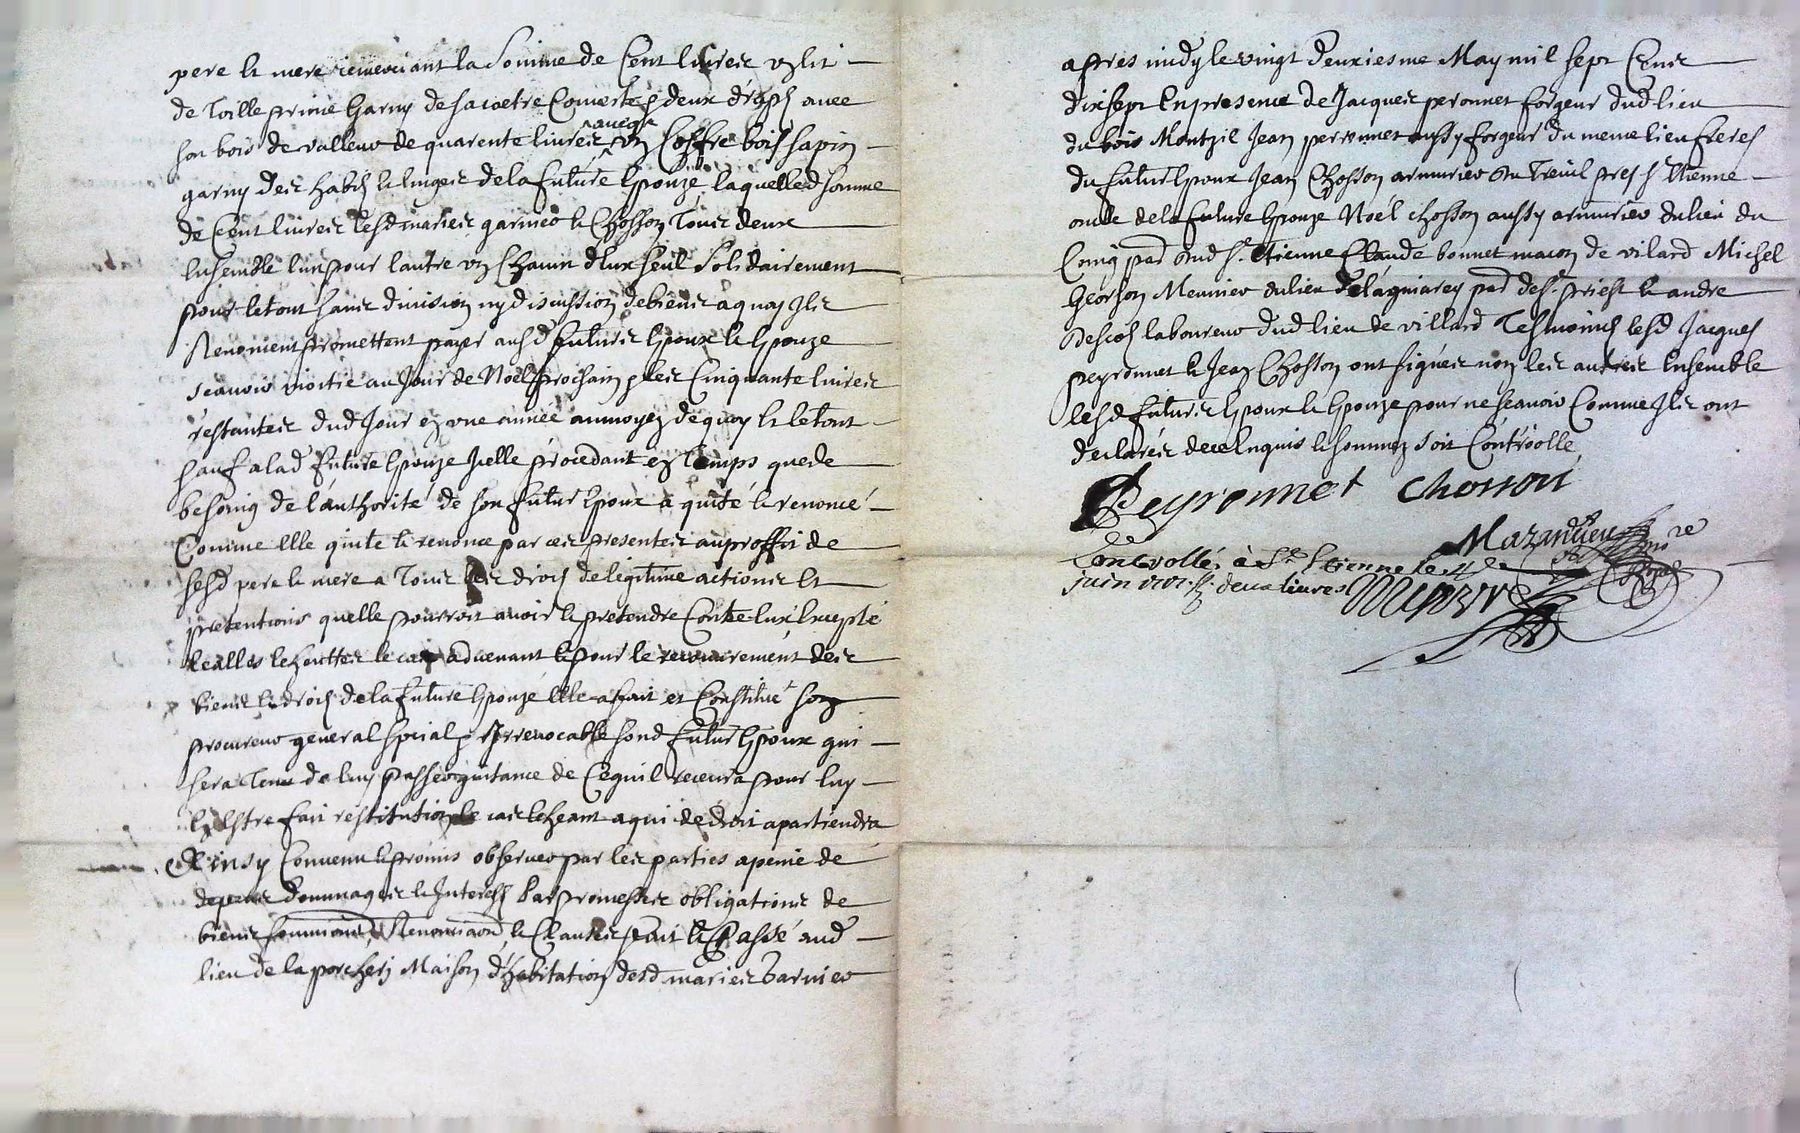 pere et mere remerciant la Somme de Cent livres un lit
de Toille prime Garny de sa coetre Couverte et deux draps avec
son bois de valleur de quarente livres avec un Coffre bois sapin
garny des habits et linges de la future Epouze laquelled somme
de Cent livres lesd mariés garnier et Chosson Tous deux
Ensemble l'un pour l'autre un Chacun d'Eux seul Solidairement
pour le tout sans division ny discussion de biens a quoy Ils
Renoncent promettent payer ausd futurs Epoux et Epouze
scavoir moitie au Jour de Noel prochain et les Cinquante livres
restantes dud Jour en une année a moyen de quoy et le tout
sauf a lad future Epouze Icelle procedant en Temps que de
besoing de l'authorité de son futur Epoux a quité et renoncé
Comme elle quite et renonce par ces presentes au proffit de
sesd pere et mere a Tous les droits de legitime actions et
pretentions quelle pourroit avoir et pretendre Contre Eux Excepté
les cas advenant et pour le recouvrement des
biens et droits de la future Epouze elle a fait et Constitué son
procureur general special et Irrevocable sond futur Epoux qui
sera Tenu de luy passer quitance de Ce quil recevra pour luy
En Estre fait restitution le cas Echeant a qui de droit apartiendra
Ainsy Convenu et promis observer par les parties a peine de
depens dommages et Interests Par promesses obligations de
biens soumissions Renonciaons et Clauses fait et Passé aud
lieu de la porcherj Maison d'habitation desd mariés Garnier
apres midy le vingt deuxiesme May mil sept Cens
dix sept En presence de Jacques peronnet forgeur dud lieu
du bois Montzil Jean perronnet aussy forgeur du meme lieu freres
du futur Epoux Jean Chosson armurier du Treuil pres St Etienne
oncle de la future Epouze Noël chosson aussy armurier du lieu du
Coing pad dud St. Etienne Claude bonnet macon de vilard Michel
Georjon Meunier du lieu de pad de St. priest et andre
Descos laboureur dud lieu de villard Tesmoins lesd Jacques
peyronnet et Jean Chosson ont signés non les autres Ensemble
lesd futurs Epoux et Epouze pour ne scavoir Comme Ils ont
declarés de ce Enquis et sommez soit Controollé
Peyronnet Chosson
Mazandieu
Controllé à St Etienne le 4e
juin 1717. R. deux livres